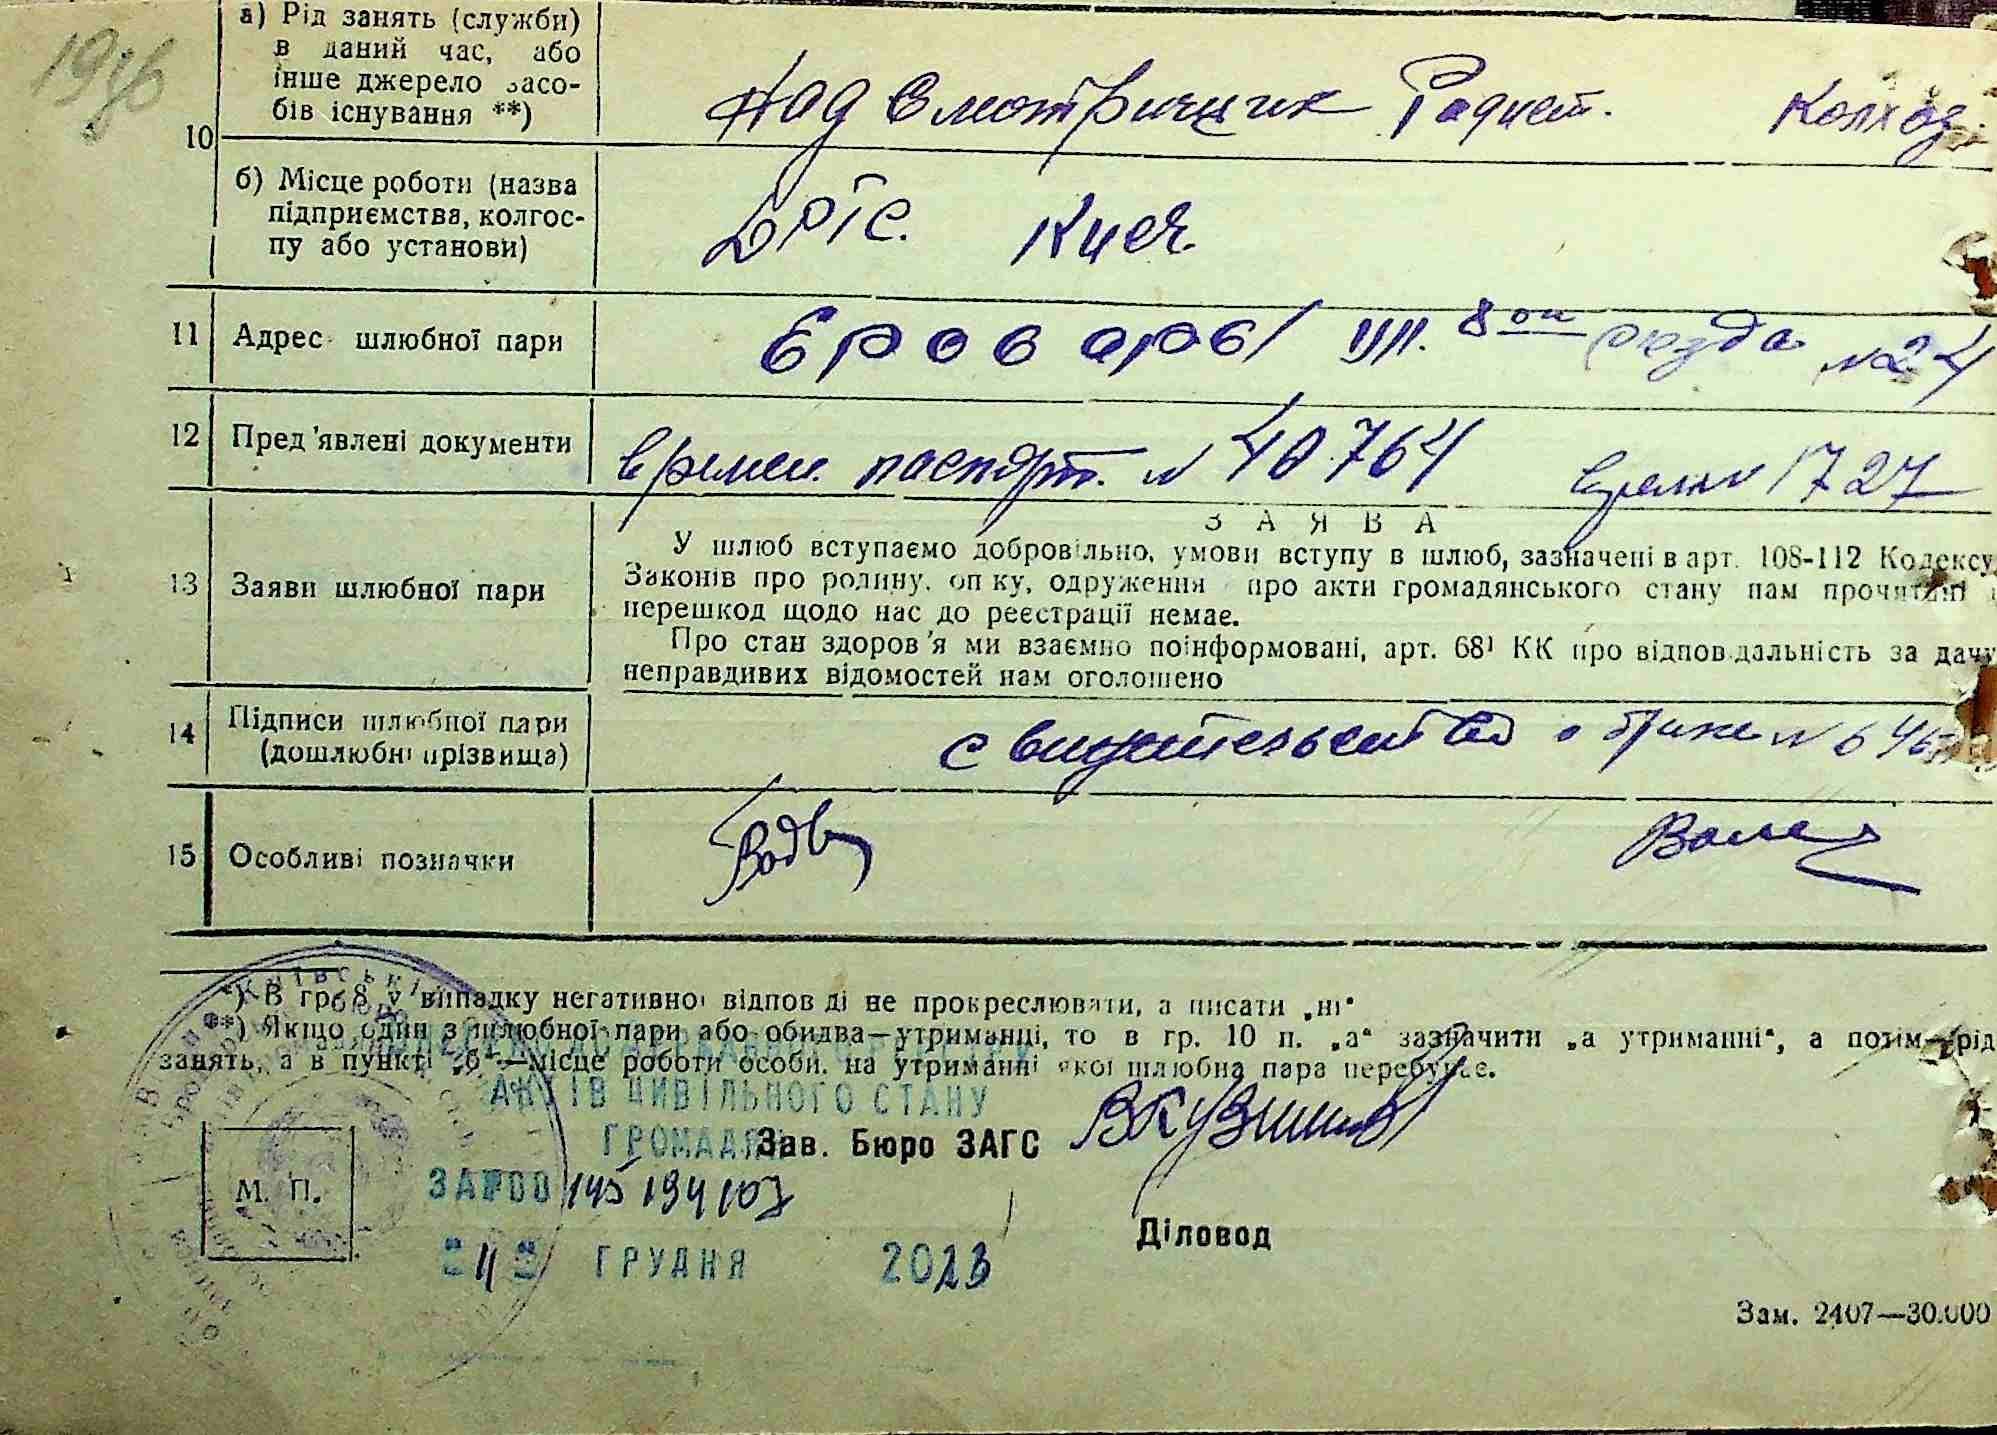 а) Рід занять (служби)
в даний час, або
інше джерело засо-
бів існування **)
Надсмотрищик Радист. Колхоз.
10
б) Місце роботи (назва
підприємства, колгос-
пу або установи)
ДРТС. Киев.
11 Адрес шлюбної пари
Бровары ул. 8 ои сезда №24
12 Пред'явлені документи
времен. паспорт. № 40.764 времен 1727
ЗАЯВА
13 Заяви шлюбної пари
У шлюб вступаємо добровільно, умови вступу в шлюб, зазначені в арт. 108-112 Кодексу
Законів про родину, опіку, одруження про акти громадянського стану нам прочитані
перешкод щодо нас до реєстрації немає.
Про стан здоров'я ми взаємно поінформовані, арт. 68¹ КК про відповідальність за дачу
неправдивих відомостей нам оголошено
14 Підписи шлюбної пари
(дошлюбні прізвища)
свидетельство о браке №
15 Особливі позначки
*) В гр. 8 у випадку негативної відповіді не прокреслювати, а писати „ні"
**) Якщо один з шлюбної пари або обидва—утриманці, то в гр. 10 п. „а" зазначити „а утриманні", а потім—рід
занять, а в пункті „б"—місце роботи особи, на утриманні якої шлюбна пара перебуває.
АКТІВ ЦИВІЛЬНОГО СТАНУ
ГРОМАДЯН
Зав. Бюро ЗАГС
М. П.
Діловод
ГРУДНЯ 2023
Зам. 2407—30.000